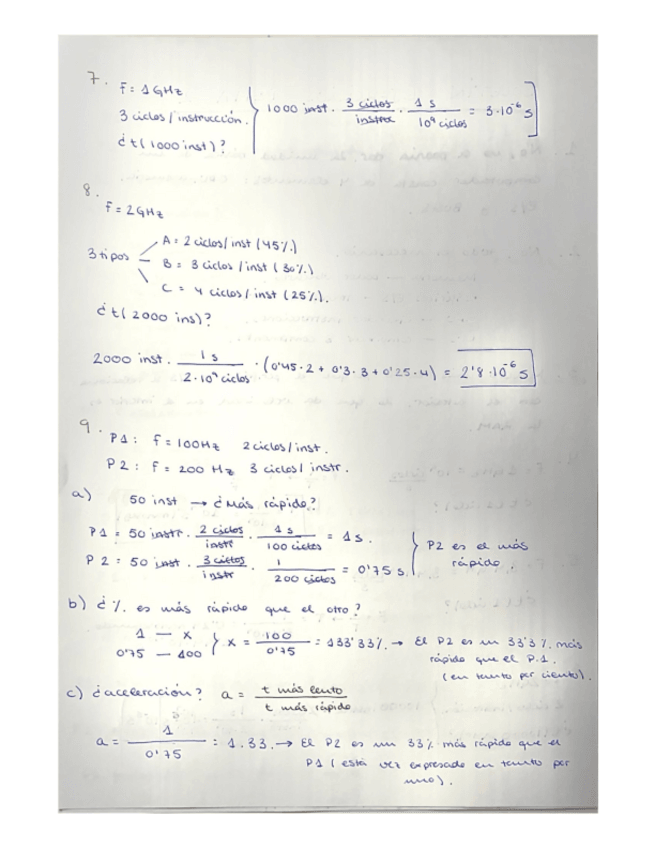 7.
f = 1 GHz
3 ciclos / instrucción.
¿t (1000 inst)?
1000 inst · 3 ciclos / instrucc · 1 s / 10⁹ ciclos = 3·10⁻⁶ s
8.
f = 2 GHz
3 tipos
A = 2 ciclos / inst (45%.)
B = 3 ciclos / inst (30%.)
C = 4 ciclos / inst (25%.).
¿t (2000 ins)?
2000 inst. 1 s / 2·10⁹ ciclos · (0'45·2 + 0'3·3 + 0'25·4) = 2'8·10⁻⁶ s
9.
P1: f = 100Hz 2 ciclos / inst.
P2: f = 200 Hz 3 ciclos / instr.
a) 50 inst → ¿Más rápido?
P1 = 50 instr · 2 ciclos / instr · 1 s / 100 ciclos = 1 s.
P2 = 50 inst · 3 ciclos / instr · 1 / 200 ciclos = 0'75 s.
P2 es el más
rápido.
b) ¿%. es más rápido que el otro?
1 — x
0'75 — 100
x = 100 / 0'75 = 133'33%. → El P2 es un 33'3%. más
rápido que el P.1.
(en tanto por ciento).
c) ¿aceleración? a = t más lento / t más rápido
a = 1 / 0'75 = 1.33. → El P2 es un 33%. más rápido que el
P1 (esta vez expresado en tanto por
uno).